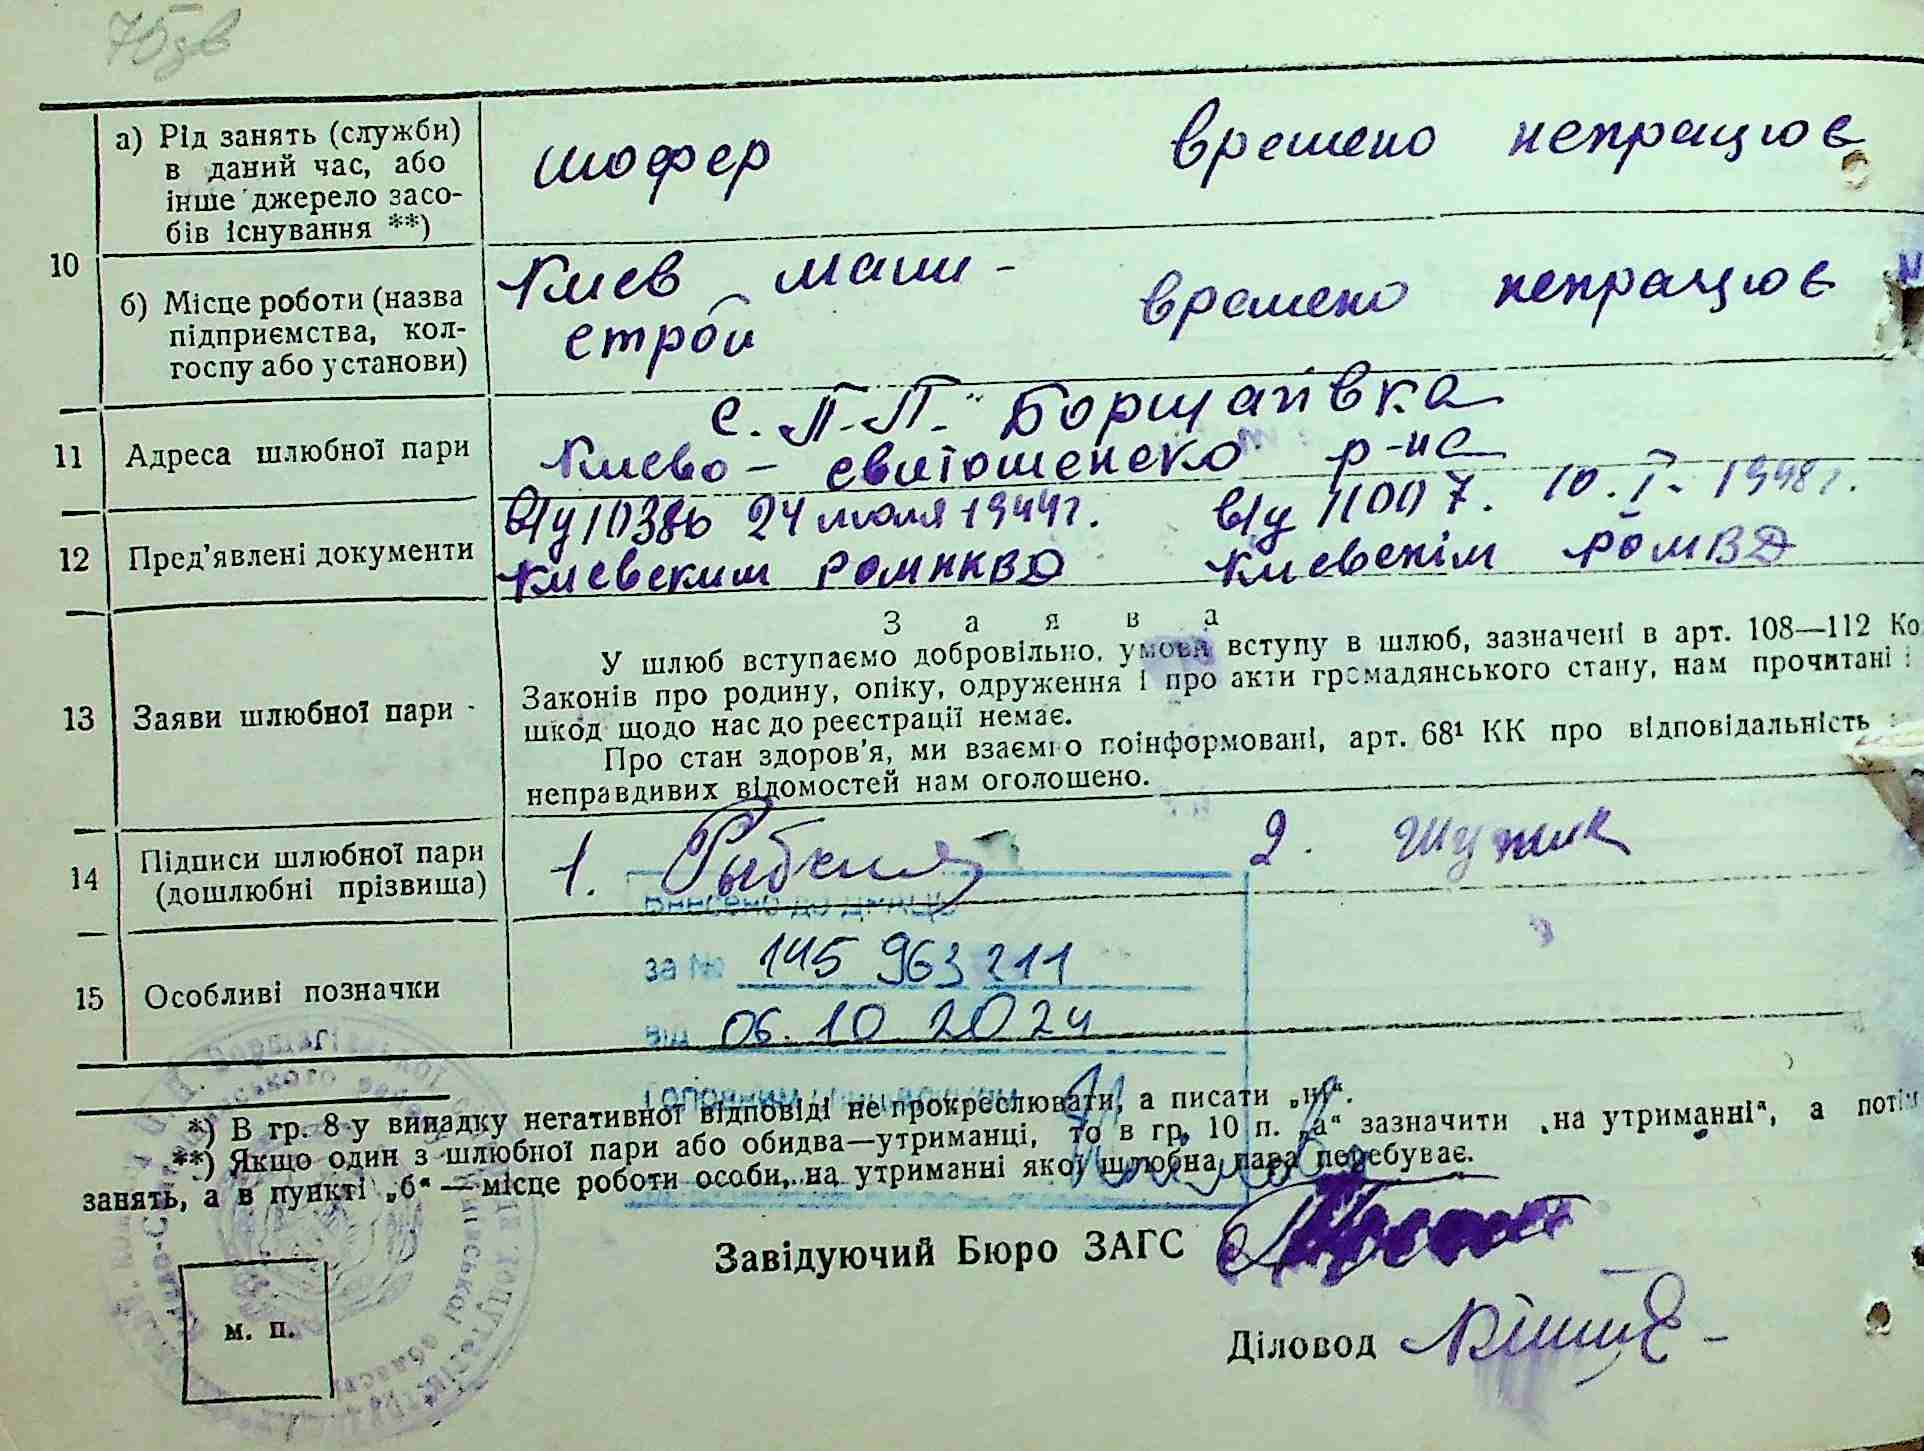 75зв
10
а) Рід занять (служби)
в даний час, або
інше джерело засо-
бів існування **)
шофер
времено непрацює
б) Місце роботи (назва
підприємства, кол-
госпу або установи)
Киев маши-
строй
времено непрацює
11
Адреса шлюбної пари
с. П.-П. Борщагівка
Києво-святошенско р-на
12
Пред'явлені документи
в/у 10386 24 июля 1944г.
Киевским РОМНКВД
в/у 11007. 10.I-1948г.
Киевскім РОМВД
13
Заяви шлюбної пари
Заява
У шлюб вступаємо добровільно, умови вступу в шлюб, зазначені в арт. 108—112 Ко
Законів про родину, опіку, одруження і про акти громадянського стану, нам прочитані і
шкод щодо нас до реєстрації немає.
Про стан здоров'я, ми взаємно поінформовані, арт. 68¹ КК про відповідальність
неправдивих відомостей нам оголошено.
14
Підписи шлюбної пари
(дошлюбні прізвища)
1.
2.
15
Особливі позначки
за № 145 963 211
від 06.10 2024
*) В гр. 8 у випадку негативної відповіді не прокреслювати, а писати „ні“.
**) Якщо один з шлюбної пари або обидва—утриманці, то в гр. 10 п. „а“ зазначити „на утриманні“, а потім
занять, а в пункті „б“—місце роботи особи, на утриманні якої шлюбна пара перебуває.
Завідуючий Бюро ЗАГС
Діловод
м. п.